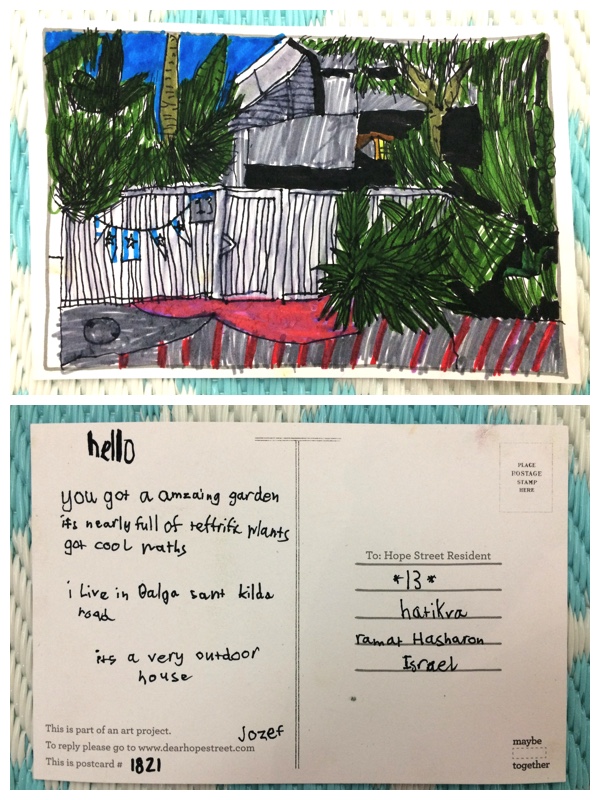 13
hello
you got a amzaing garden
its nearly full of teftrifk plants
got cool paths
i live in Balga sant kilda
road
its a very outdoor
house
Jozef
This is part of an art project.
To reply please go to www.dearhopestreet.com
This is postcard # 1821
PLACE
POSTAGE
STAMP
HERE
To: Hope Street Resident
*13*
hatikva
ramat Hasharon
Israel
maybe
together